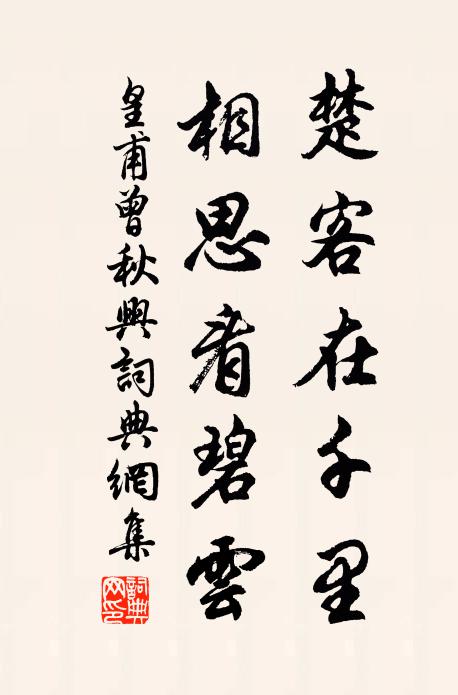 楚客在千里
相思看碧雲
皇甫曾秋興詞典網集
詞典網印